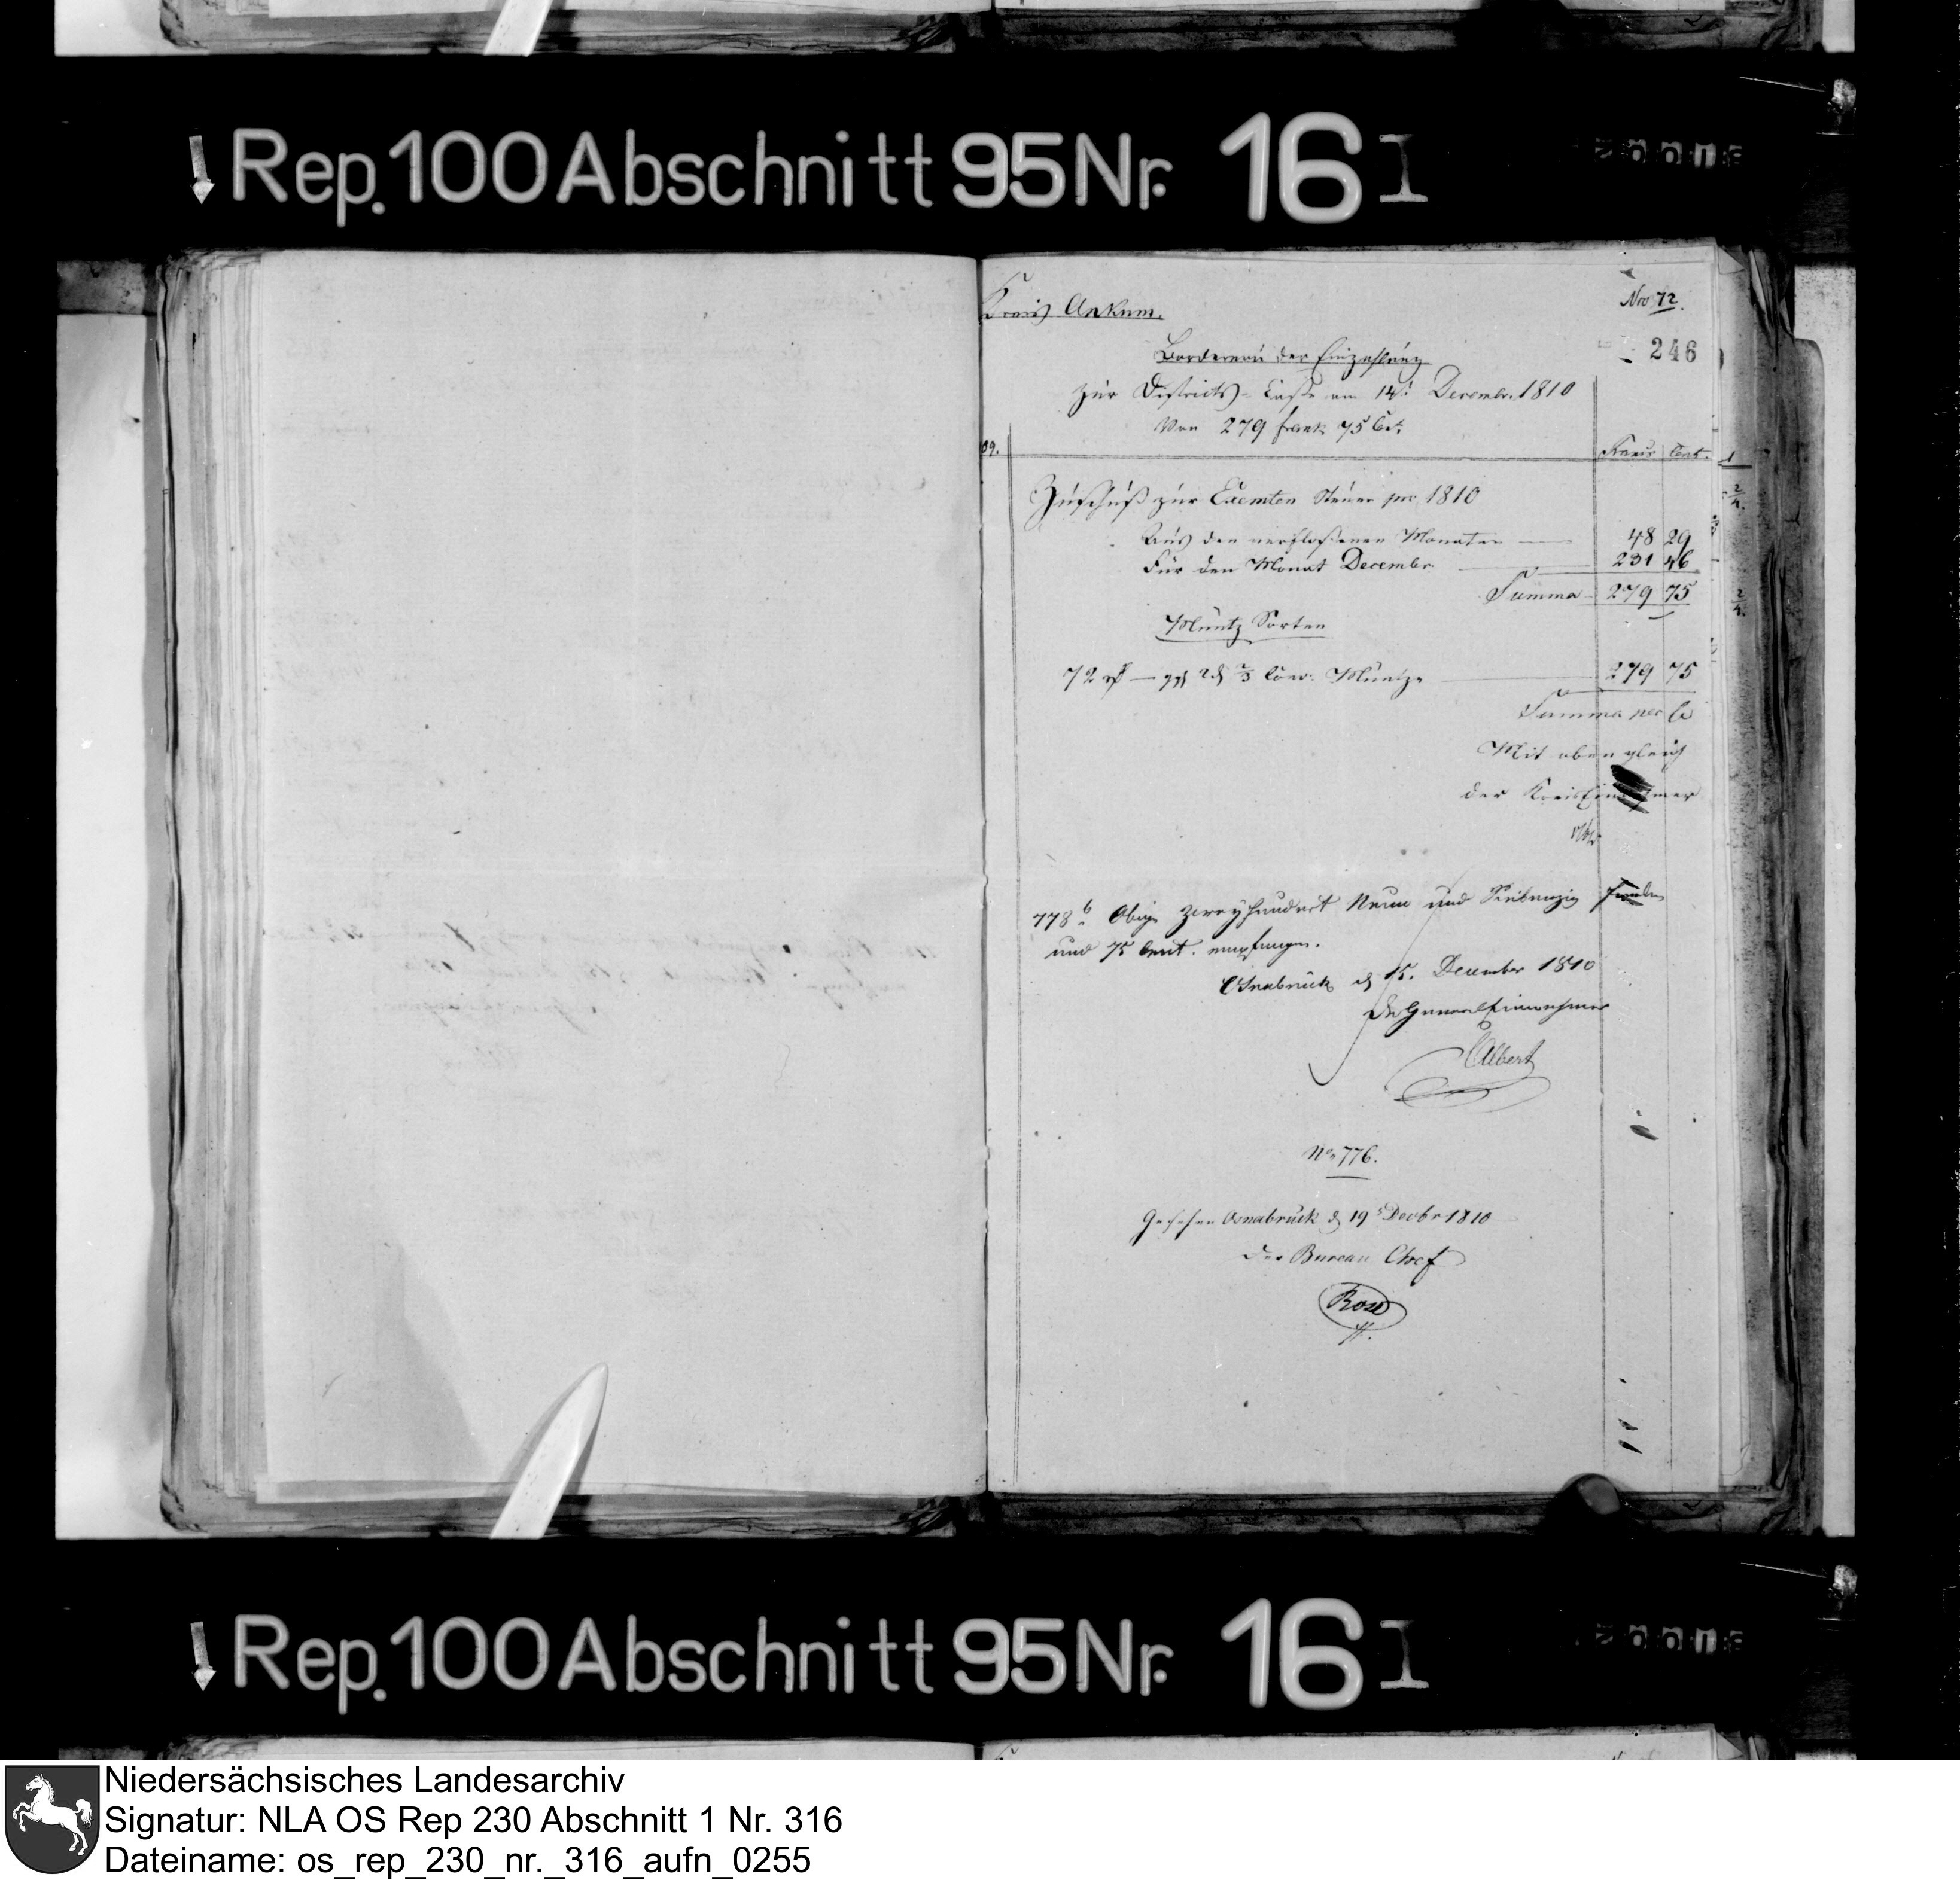 Rep. 100 Abschnitt 95 Nr. 16 I
Kreis Ankum.
Nro 72.
246
Bordereau der Einzahlung
zur Districts-Casse am 14t Decembr. 1810
Von 279 frank 75 Cet.
09.
Franc Cent.
Zuschuß zur Exemten Steuer pro 1810
Aus den verfloßenen Monaten 48 29
Für den Monat Decembr. 231 46
Summa 279 75
Müntz Sorten
72 rf 2/3 Conv. Müntze 279 75
Summa per se
Mit oben gleich
der KreisEinnehmer
778 b Obige zweyhundert Neun und Siebenzig Franken
und 75 Cent. empfangen.
Osnabrück d 15. December 1810
Der GeneralEinnehmer
Albert
No. 776.
Gesehen Osnabrück d 19 Decbr 1810
der Bureau Chef
Rose
Rep. 100 Abschnitt 95 Nr. 16 I
Niedersächsisches Landesarchiv
Signatur: NLA OS Rep 230 Abschnitt 1 Nr. 316
Dateiname: os_rep_230_nr._316_aufn_0255